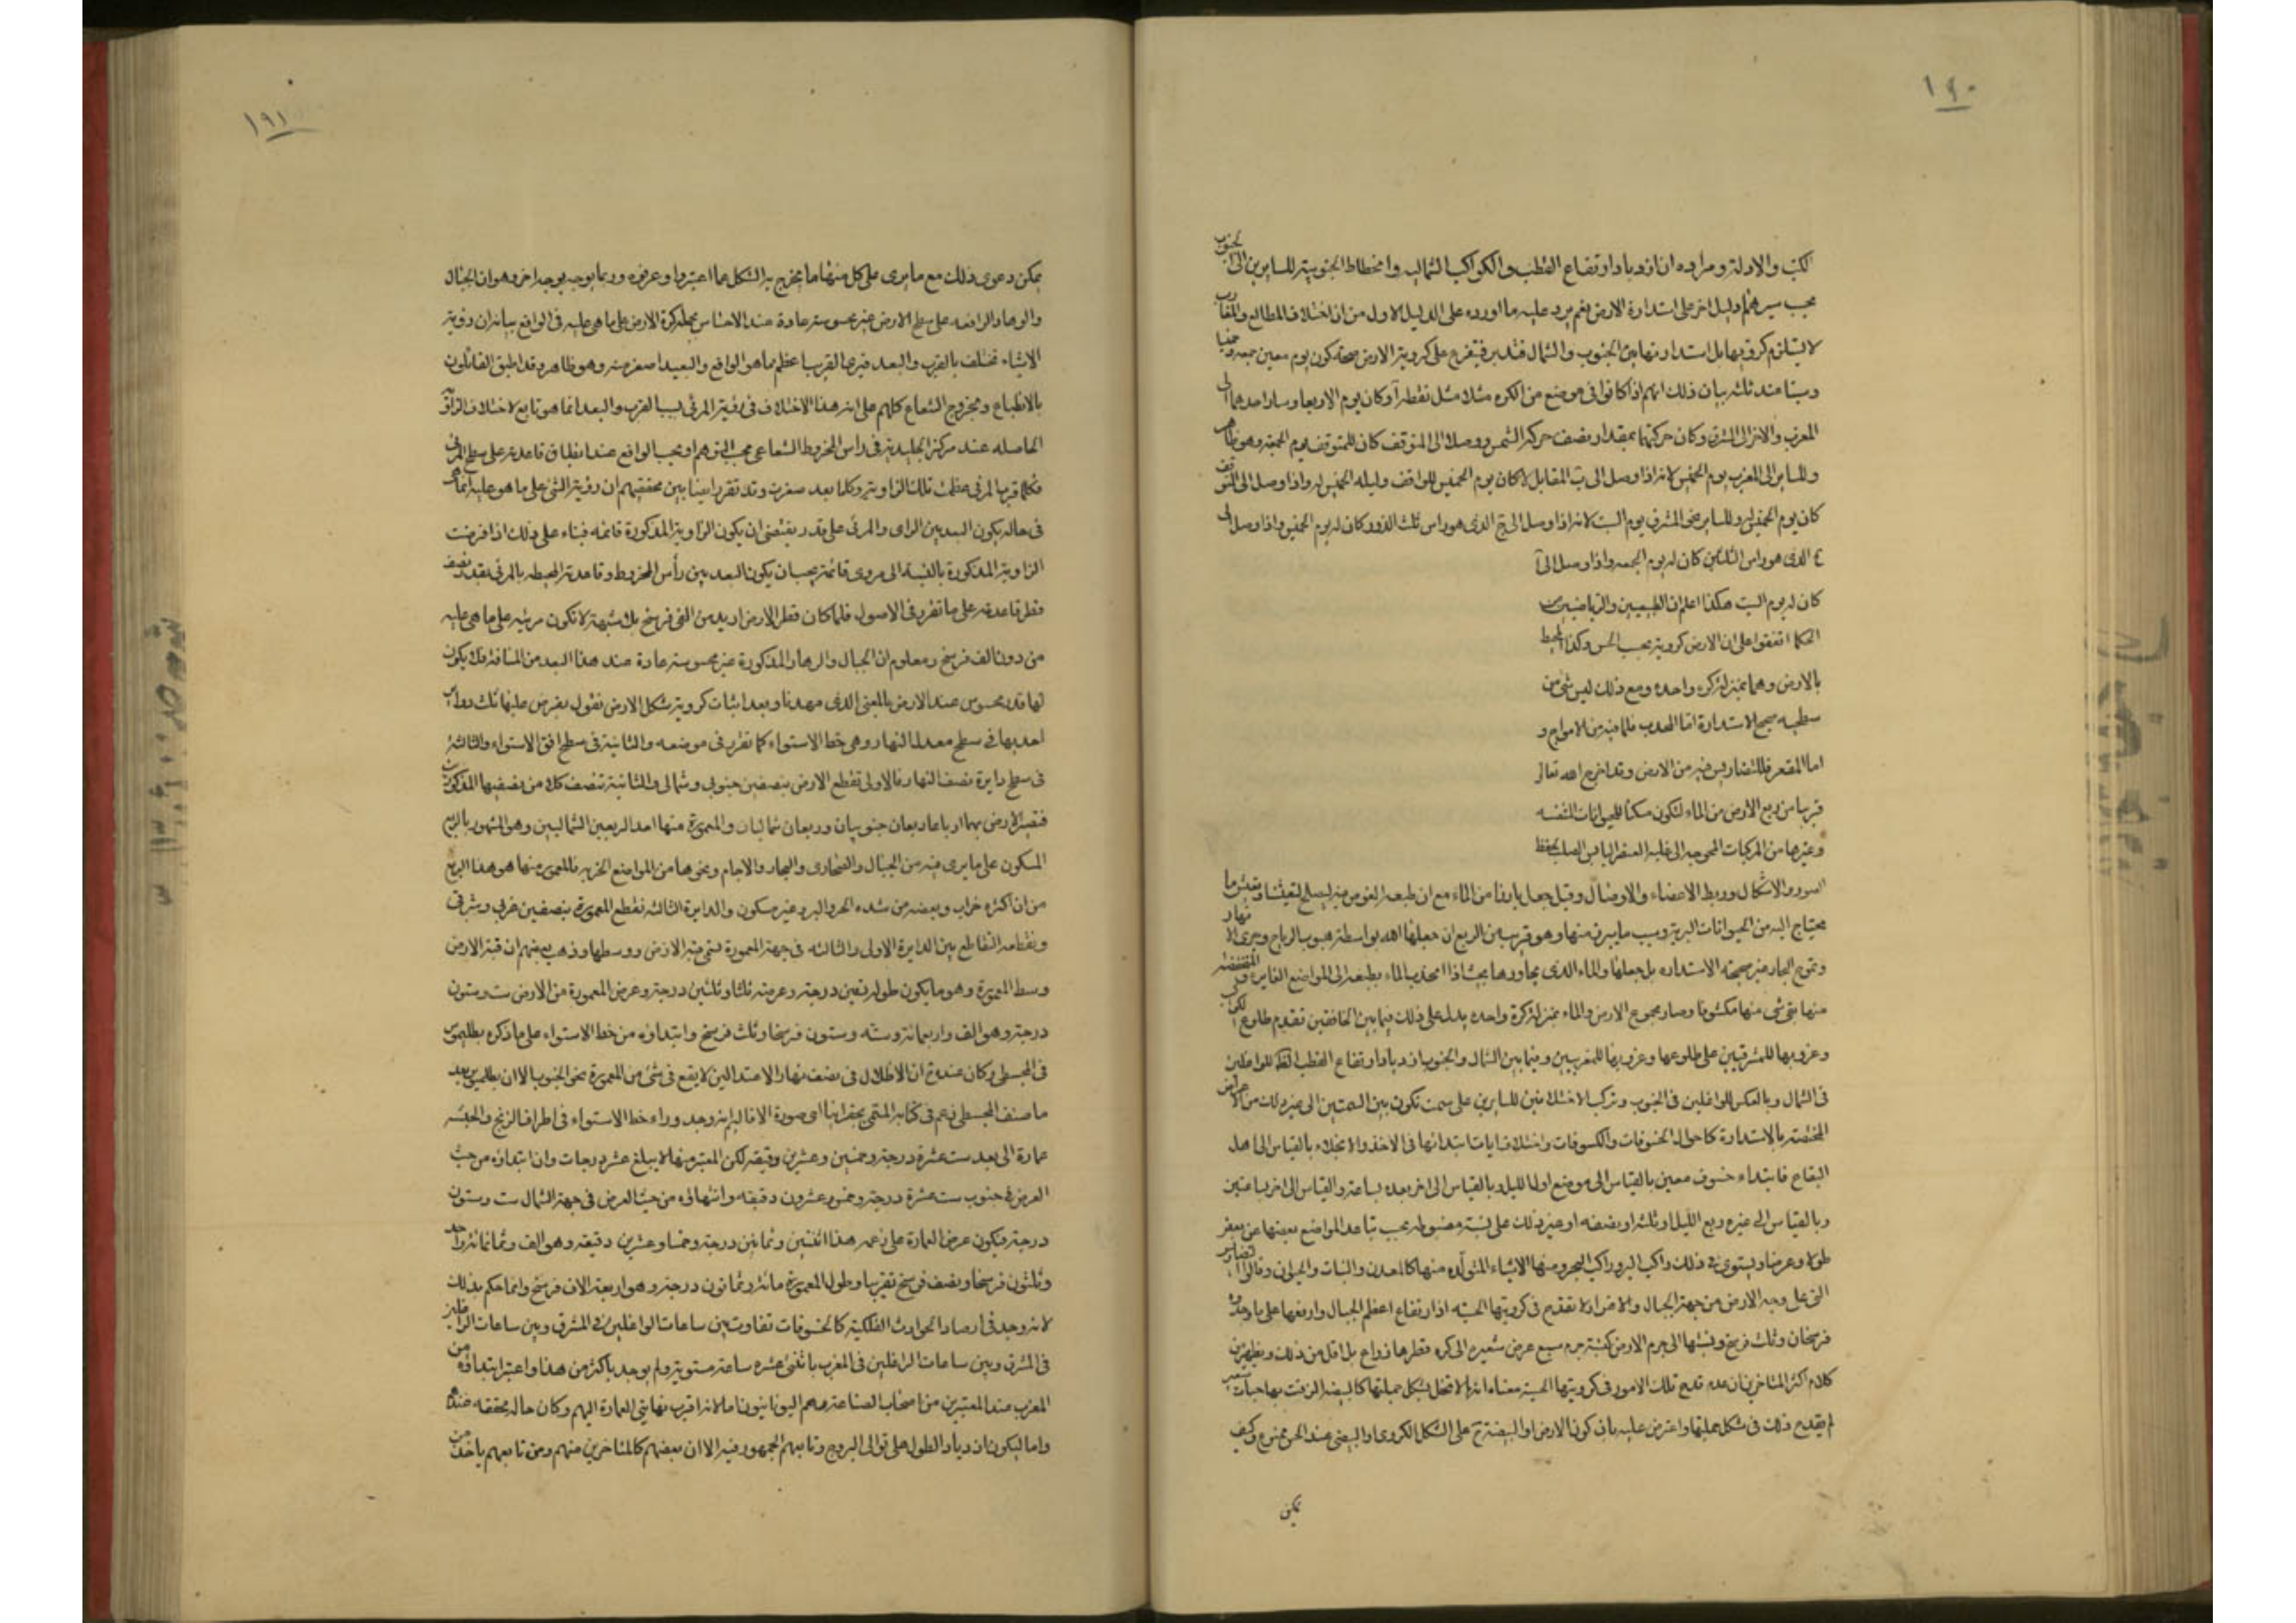 ١٩٠
الكتب والادلة ومراده ان ازدياد ارتفاع القطب والكواكب الشمالية وانحطاط الجنوبية للسايرين الى الجنوب
بحسب سيرهم دليل اخر على استدارة الارض نعم يرد عليه ما اورده على الدليل الاول من ان اختلاف المطالع والمغارب
لا يستلزم كرويتها بل استدارتها بين الجنوب والشمال فتدبر فيتفرع على كروية الارض صحة كون يوم معين جمعة وخميسا
وسبتا عند ثلثه بيان ذلك انهم اذا كانوا فى موضع من الكره مثلا مثل نقطة آ وكان يوم الاربعا وسار احدهما الى
المغرب والاخر الى المشرق وكان حركتهما بمقدار نصف حركة الشمس ووصلا الى المتوقف كان للمتوقف يوم الجمعة وهو ظاهر
وللساير الى المغرب يوم الخميس لانه اذا وصل الى ب المقابل لآ كان يوم الخميس للواقف وليله الخميس له واذا وصل الى المتوقف
كان يوم الخميس له وللساير نحو المشرق يوم السبت لانه اذا وصل الى ج الذى هو راس ثلث الدور كان له يوم الخميس واذا وصل الى
ع الذى هو راس الثلثين كان له يوم الجمعه واذا وصل الى آ
كان له يوم السبت هكذا اعلم ان الطبيعيين والرياضيين من
الحكما اتفقوا على ان الارض كروية بحسب الحس وكذا المحيط
بالارض وهما بمنزلة كره واحده ومع ذلك ليس شى من
سطحيه صحيح الاستدارة اما المحدب فلما فيه من الامواج و
اما المقعر فللتضاريس فيه من الارض وقد اخرج الله تعالى
قريبا من ربع الارض من الماء لتكون مسكنا للحيوانات المتنفسه
وغيرها من المركبات المحوجه الى غلبة العنصر اليابس الصلب لحفظ
الصور والاشكال وربط الاعضاء والاوصال وقيل جعل بارزا من الماء مع ان طبعه الغوص فيه ليصلح لتعيشنا وتعيش ما
يحتاج اليه من الحيوانات البرية وبسبب ما يبرز منها وهو قريب من الربع ان جعلها الله بواسطة هبوب الرياح وجرى الانهار
وتموج البحار غير صحيحة الاستداره بل جعلها والماء الذى يجاورها بحيث اذا انجذب الماء بطبعه الى المواضع الغايره والمنخفضه
منها بقى شى منها مكشوفا وصار مجموع الارض والماء بمنزلة كرة واحده يدل على ذلك فيما بين الخافقين تقدم طلوع الكواكب
وغروبها للمشرقيين على طلوعها وغروبها للمغربيين وفيما بين الشمال والجنوب ازدياد ارتفاع القطب الظاهر للواغلين
فى الشمال وبالعكس للواغلين فى الجنوب وتركب الاختلافين للسايرين على سمت تكون بين السمتين الى غير ذلك من الاعراض
المختصه بالاستدارة كاحوال الخسوفات والكسوفات واختلاف ابتدائها فى الاخذ والانجلاء بالقياس الى اهل
البقاع فابتداء خسوف معين بالقياس الى موضع اول الليل وبالقياس الى اخر بعده بساعة وبالقياس الى اخر بساعتين
وبالقياس الى غيره ربع الليل او ثلثه او نصفه او غير ذلك على نسبة مضبوطه بحسب تباعد المواضع بعضها عن بعض
طولا وعرضا ويستوى فى ذلك راكب البر وراكب البحر ومنها الاشياء المتولده منها كالمعدن والنبات والحيوان وقالوا التضاريس
التى على وجه الارض من جهة الجبال والاغوار لا تقدح فى كرويتها الحسيه اذ ارتفاع اعظم الجبال وارفعها على ما وجدوه
فرسخان وثلث فرسخ ونسبتها الى جرم الارض كنسبة جرم سبع عرض شعيره الى كره قطرها ذراع بل اقل من ذلك ويظهر من
كلام اكثر المتاخرين ان عدم قدح تلك الامور فى كرويتها الحسية معناه انها لا تخل بشكل جملتها كالبيضه الزقت بها حبات شعير
لم يقدح ذلك فى شكل جملتها واعترض عليه بان كون الارض او البيضة ح على الشكل الكروى او البيضى عند الحس ممنوع وكيف
يمكن
١٩١
يمكن دعوى ذلك مع ما يرى على كل منهما ما يخرج به الشكل عما اعتبروا وعرفوه وربما يوجه بوجه اخر وهو ان الجبال
والوهاد الواقعه على سطح الارض غير محسوسة عادة عند الاحساس بجملة كرة الارض على ما هى عليه فى الواقع بيانه ان روية
الاشياء تختلف بالقرب والبعد فيرى القريب اعظم مما هو الواقع والبعيد اصغر منه وهو ظاهر وقد اطبق القائلون
بالانطباع وبخروج الشعاع كلهم على ان هذا الاختلاف فى روية المرئى بسبب القرب والبعد انما هو تابع لاختلاف الزاوية
الحاصله عند مركز الجليدية فى راس المخروط الشعاعى بحسب التوهم او بحسب الواقع عند انطباق قاعدته على سطح المرئى
فكلما قرب المرئى عظمت تلك الزاوية وكلما بعد صغرت وقد تقرر ايضا بين محققيهم ان روية الشى على ما هو عليه انما هو
فى حاله يكون البعد بين الراى والمرئى على قدر يقتضى ان يكون الزاوية المذكورة قائمه فبناء على ذلك اذا فرضت
الزاوية المذكورة بالنسبة الى مرئى قائمة يجب ان يكون البعد بين رأس المخروط وقاعدته المحيطه بالمرئى بقدر نصف
قطر قاعدته على ما تقرر فى الاصول فلما كان قطر الارض ازيد من الفى فرسخ بلا شبهة لا تكون مرئيه على ما هى عليه
من دون الف فرسخ ومعلوم ان الجبال والوهاد المذكورة غير محسوسة عادة عند هذا البعد من المسافة فلا يكون
لها قدر محسوس عند الارض بالمعنى الذى مهدنا وبعد اثبات كروية شكل الارض نقول يفرض عليها ثلث دواير
احديها فى سطح معدل النهار وهى خط الاستواء كما تقرر فى موضعه والثانية فى سطح افق الاستواء والثالثة
فى سطح دايرة نصف النهار فالاولى تقطع الارض بنصفين جنوبى وشمالى والثانية تنصف كلا من نصفيها المذكورين
فتصير الارض بهما ارباعا ربعان جنوبيان وربعان شماليان والمعمورة منها احد الربعين الشماليين وهو المشهور بالربع
المسكون على ما يرى فيه من الجبال والصحارى والبحار والاجام ونحوها من المواضع الخربه فالمعمور منها هو هذا الربع
من ان اكثره خراب وبعضه من شده الحر والبرد غير مسكون والدايرة الثالثه تقطع المعمورة بنصفين غربى وشرقى
ونقطه التقاطع بين الدايرة الاولى والثالثه فى جهة المعمورة تسمى قبة الارض ووسطها وذهب بعضهم ان قبة الارض
وسط المعمورة وهو ما يكون طوله تسعين درجة وعرضه ثلثا وثلثين درجة وعرض المعمورة من الارض ست وستون
درجة وهو الف واربعمائة وسته وستون فرسخا وثلث فرسخ وابتداؤه من خط الاستواء على ما ذكره بطلميوس
فى المجسطى وكان عنده ان الاظلال فى نصف نهار الاعتدالين لا يقع فى شى من المعمورة نحو الجنوب الا ان بطلميوس بعد
ما صنف المجسطى زعم فى كتابه المسمى بجغرافيا اى صورة الاقاليم انه وجد وراء خط الاستواء فى اطراف الزنج والحبشه
عمارة الى بعد ست عشرة درجة وخمس وعشرين دقيقة لكن المعتبر منها لا يبلغ عشر درجات وان ابتداؤه من حيث
العرض فى جنوب ست عشرة درجة وخمس وعشرون دقيقه وانتهائه من حيث العرض فى جهة الشمال ست وستون
درجة فيكون عرض العمارة على زعمه هذا اثنتين وثمانين درجة وخمسا وعشرين دقيقه وهو الف وثمانمائة واحد
وثلثون فرسخا ونصف فرسخ تقريبا وطول المعمورة مائة وثمانون درجة وهو اربعة الاف فرسخ وانما حكم بذلك
لانه وجد فى ارصاد الحوادث الفلكية كالخسوفات تفاوت بين ساعات الواغلين فى المشرق وبين ساعات الواغلين
فى المشرق وبين ساعات الواغلين فى المغرب باثنتى عشره ساعة مستوية ولم يوجد باكثر من هذا واعتبر ابتداؤه من
المغرب عند المعتبرين من اصحاب الصناعة وهم اليونانيون اما لانه اقرب نهايتى العمارة اليهم وكان حاله محققه عندهم
واما ليكون ازدياد الطول على توالى البروج وتابعهم الجمهور فيه الا ان بعضهم كالمتاخرين منهم ومن تابعهم ياخذ من